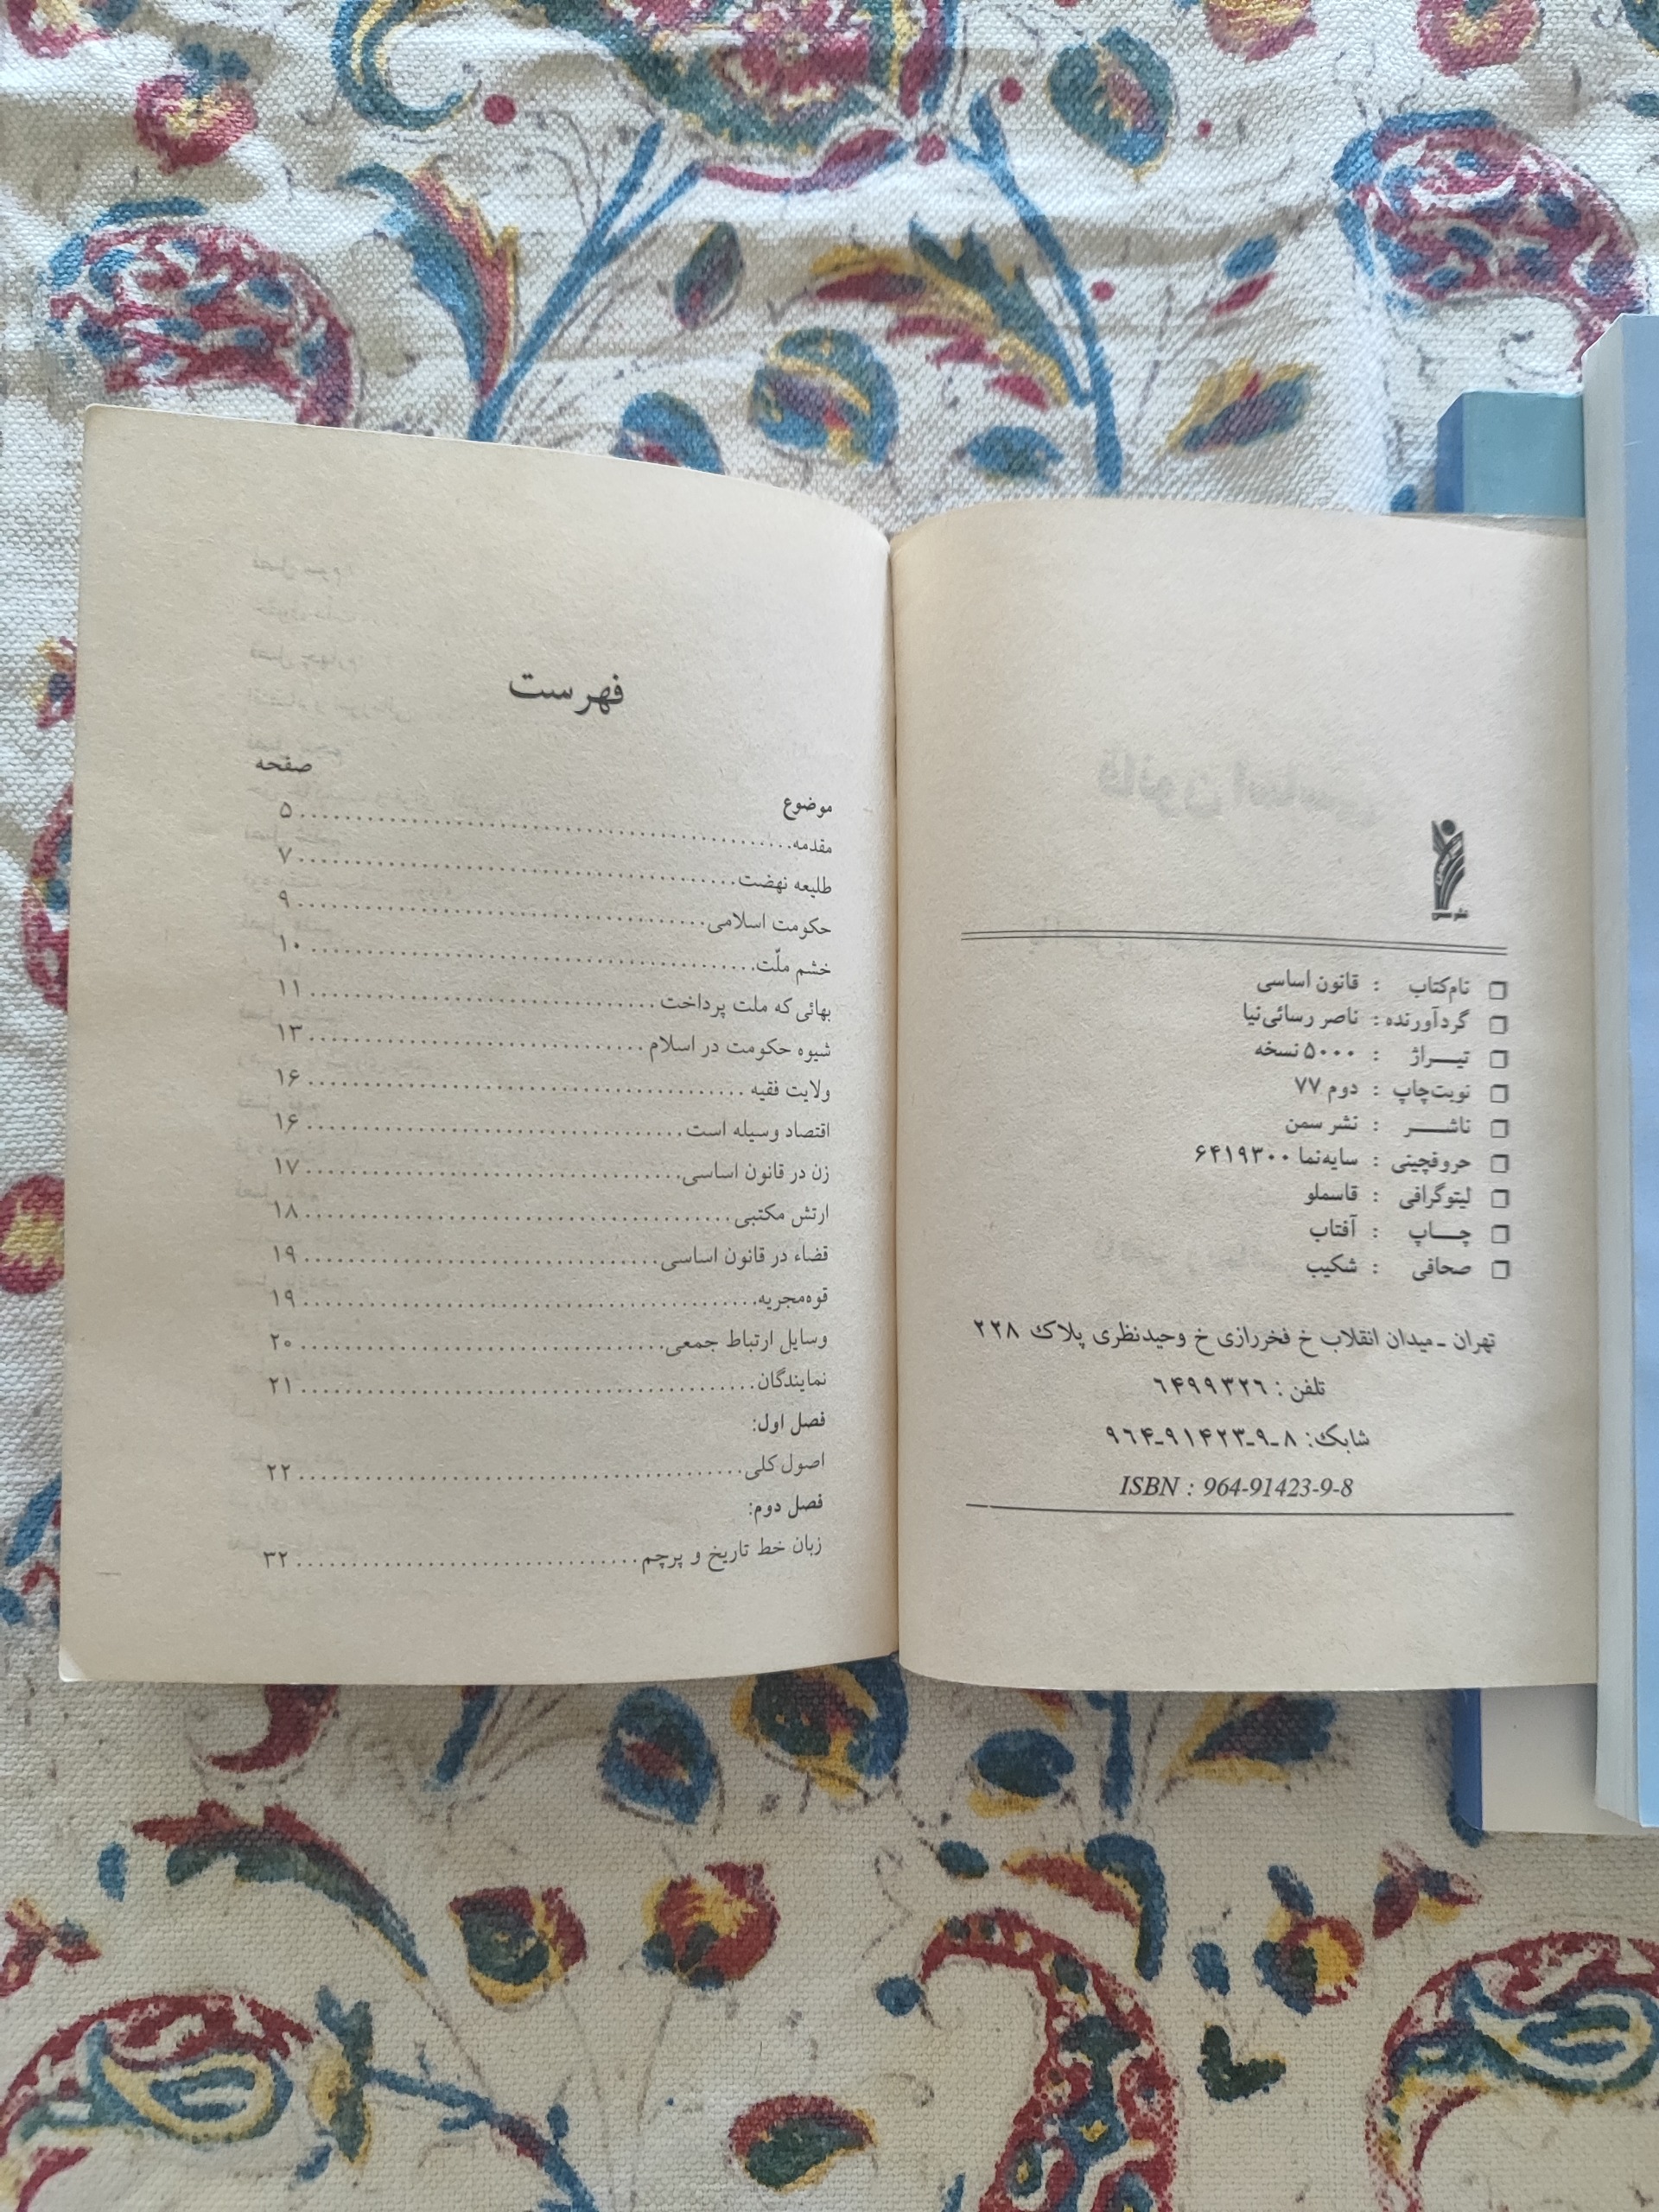 نشر سمن
نام‌کتاب : قانون اساسی
گردآورنده : ناصر رسائی‌نیا
تیـــراژ : ۵۰۰۰ نسخه
نوبت‌چاپ : دوم ۷۷
ناشـــر : نشر سمن
حروفچینی : سایه‌نما ۶۴۱۹۳۰۰
لیتوگرافی : قاسملو
چـــاپ : آفتاب
صحافی : شکیب
تهران ـ میدان انقلاب خ فخررازی خ وحیدنظری پلاک ۲۲۸
تلفن : ۶۴۹۹۳۲۶
شابک: ۸ـ۹ـ۹۱۴۲۳ـ۹۶۴
ISBN : 964-91423-9-8
فهرست
صفحه
موضوع
مقدمه ۵
طلیعه نهضت ۷
حکومت اسلامی ۹
خشم ملّت ۱۰
بهائی که ملت پرداخت ۱۱
شیوه حکومت در اسلام ۱۳
ولایت فقیه ۱۶
اقتصاد وسیله است ۱۶
زن در قانون اساسی ۱۷
ارتش مکتبی ۱۸
قضاء در قانون اساسی ۱۹
قوه‌مجریه ۱۹
وسایل ارتباط جمعی ۲۰
نمایندگان ۲۱
فصل اول:
اصول کلی ۲۲
فصل دوم:
زبان خط تاریخ و پرچم ۳۲